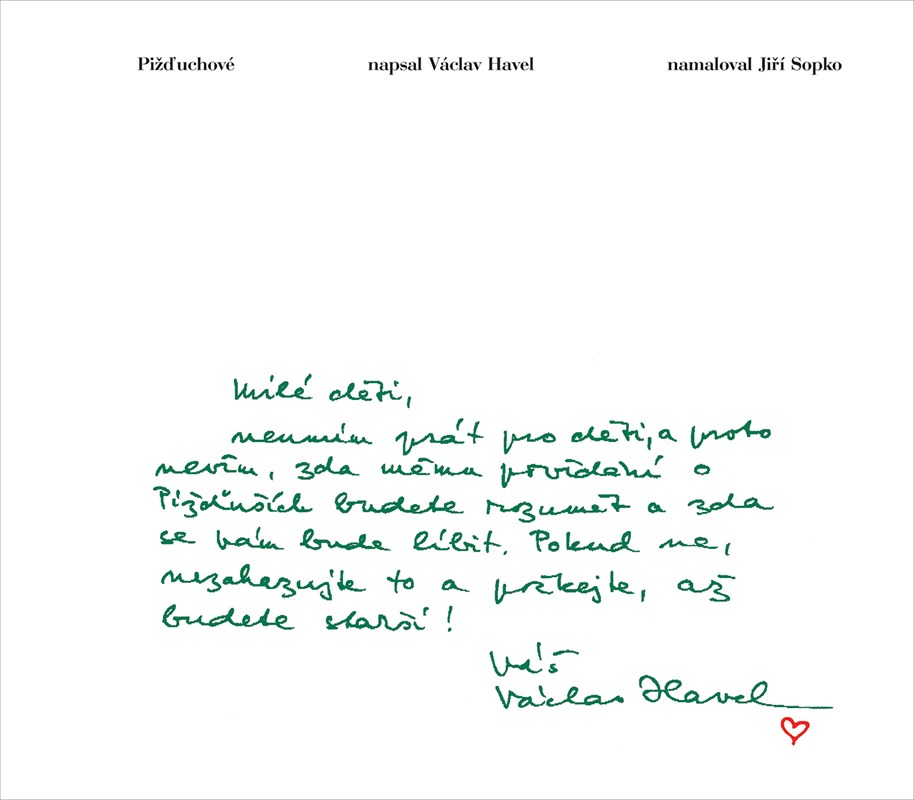 Pižďuchové napsal Václav Havel namaloval Jiří Sopko
Milé děti,
neumím psát pro děti, a proto
nevím, zda mému povídání o
Pižďuších budete rozumět a zda
se vám bude líbit. Pokud ne,
nezahazujte to a počkejte, až
budete starší!
Váš
Václav Havel